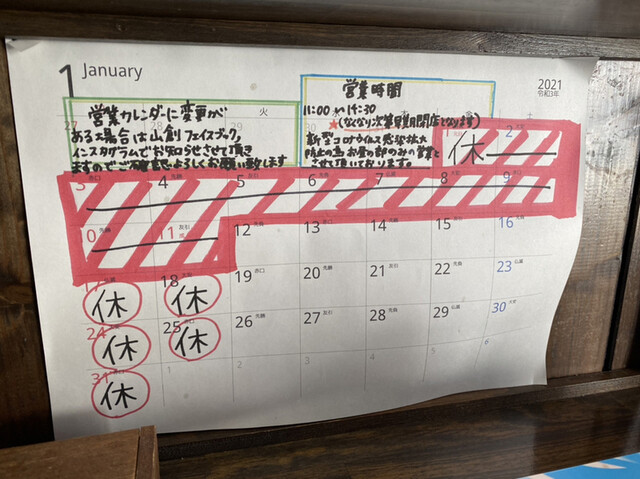 1 January
2021
令和3年
営業カレンダーに変更が
ある場合は山創フェイスブック,
インスタグラムでお知らせさせて頂き
ますのでご確認よろしくお願い致します
営業時間
11:00〜14:30
(なくなり次第早期閉店となります)
新型コロナウイルス感染拡大
防止の為お昼の部のみの営業と
させて頂いております
火
休 2
3 4 5 6 7 8 9
11 12 13 14 15 16
17 休 18 休 19 20 21 22 23
24 休 25 休 26 27 28 29 30
31 休 1 2 3 4 5 6